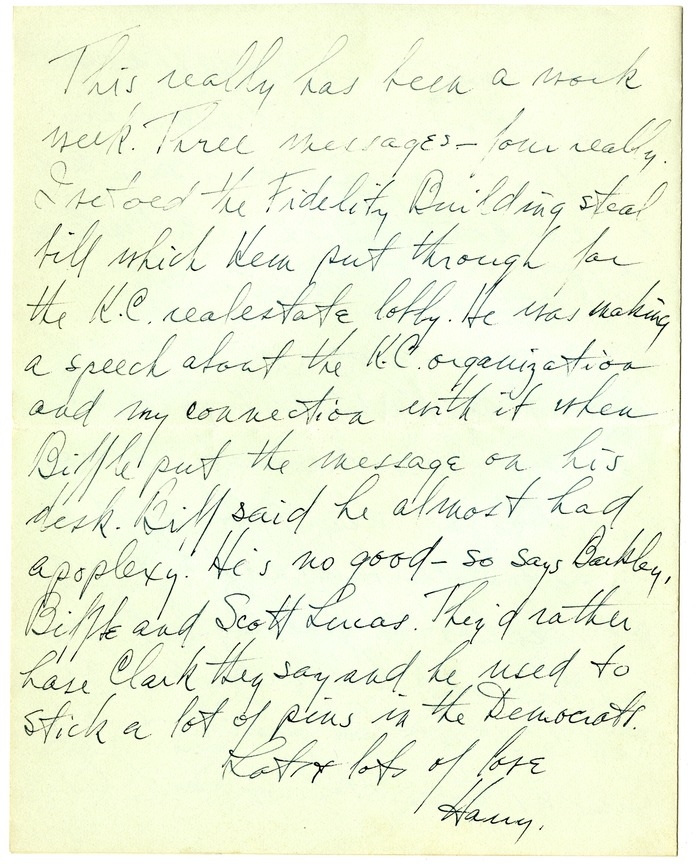 This really has been a work
week. Three messages – four really.
I vetoed the Fidelity Building steal
bill which Kem put through for
the K.C. realestate lobby. He was making
a speech about the K.C. organization
and my connection with it when
Biffle put the message on his
desk. Biff said he almost had
apoplexy. He's no good – so says Barkley,
Biffle and Scott Lucas. They'd rather
have Clark they say and he used to
stick a lot of pins in the Democrats.
Lots & lots of love
Harry.